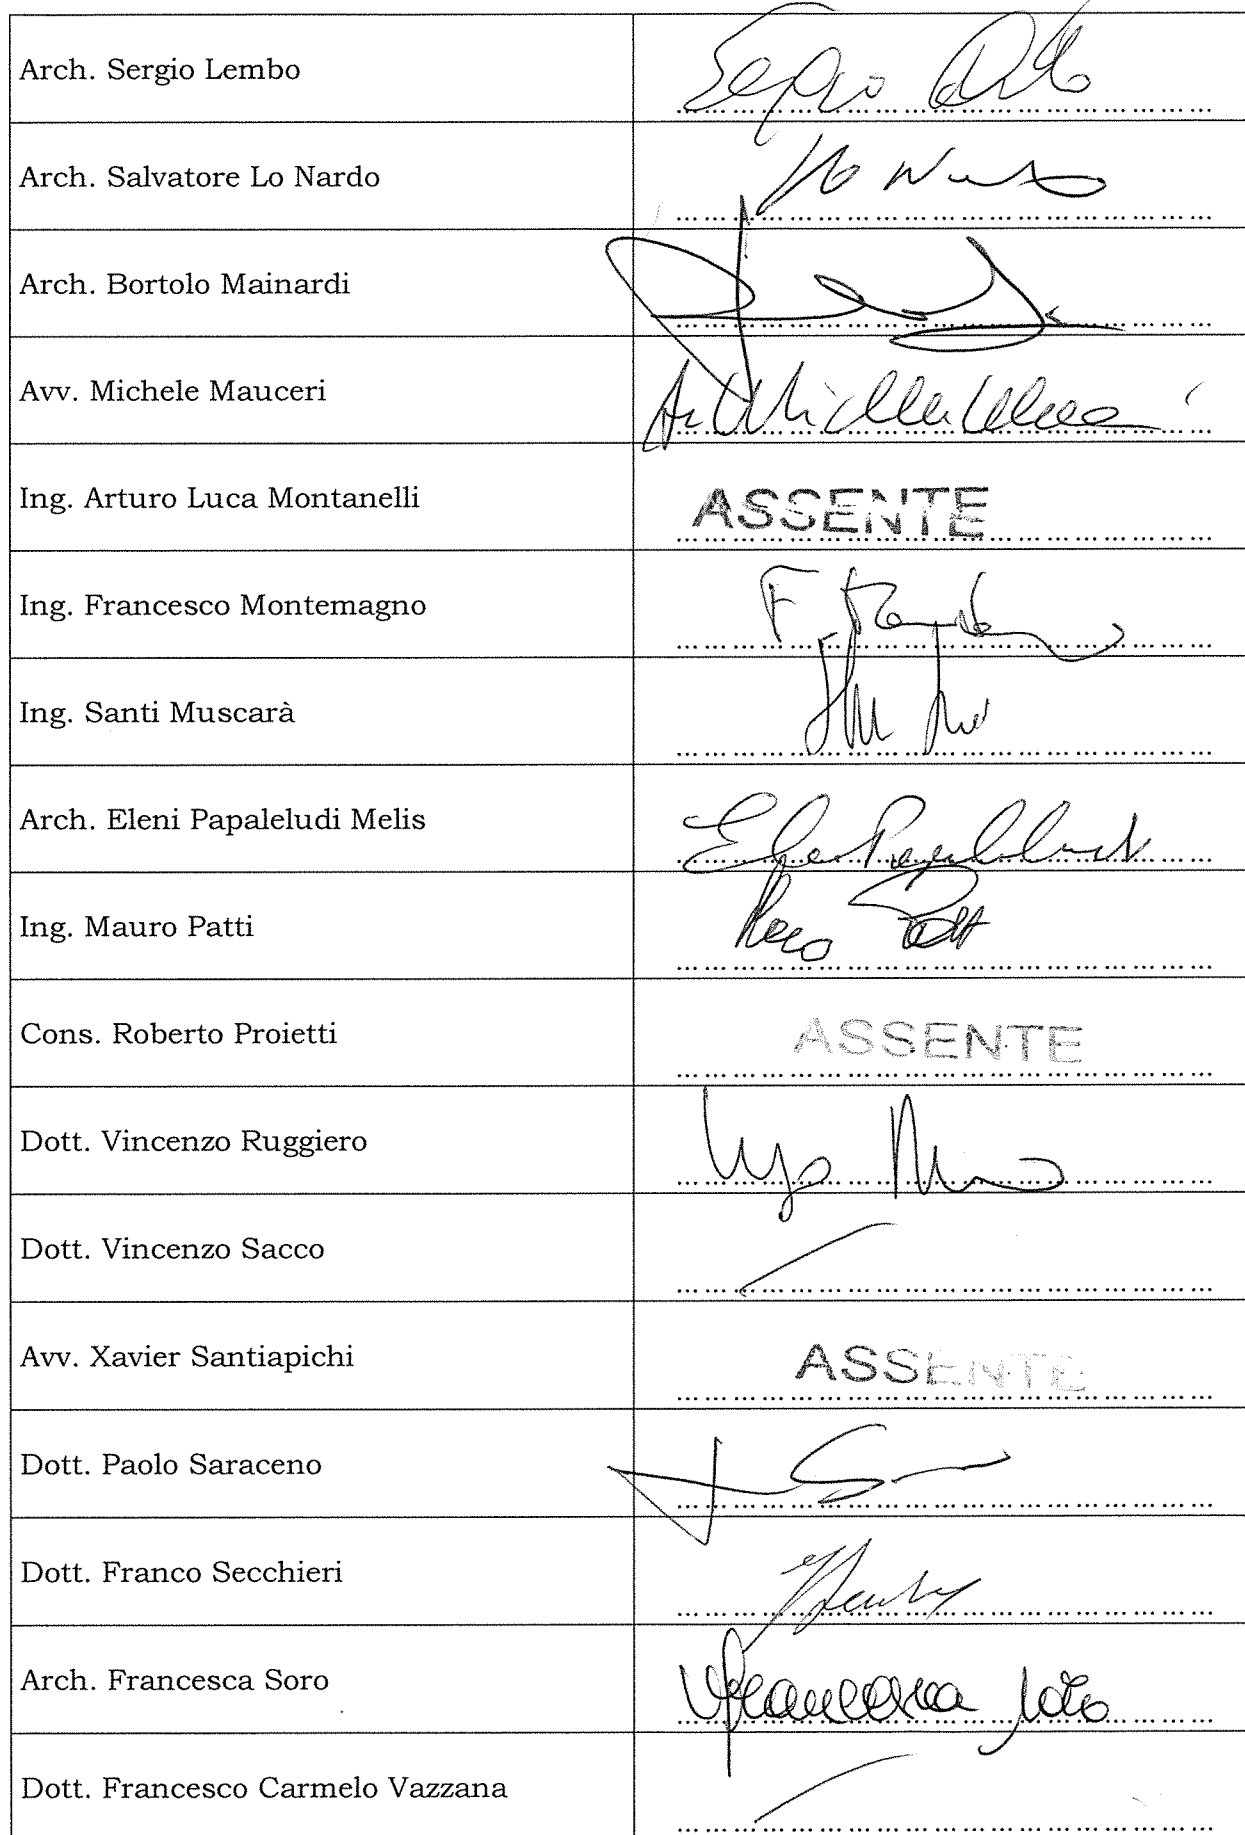 Arch. Sergio Lembo
Arch. Salvatore Lo Nardo
Arch. Bortolo Mainardi
Avv. Michele Mauceri
Ing. Arturo Luca Montanelli ASSENTE
Ing. Francesco Montemagno
Ing. Santi Muscarà
Arch. Eleni Papaleludi Melis
Ing. Mauro Patti
Cons. Roberto Proietti ASSENTE
Dott. Vincenzo Ruggiero
Dott. Vincenzo Sacco
Avv. Xavier Santiapichi ASSENTE
Dott. Paolo Saraceno
Dott. Franco Secchieri
Arch. Francesca Soro
Dott. Francesco Carmelo Vazzana